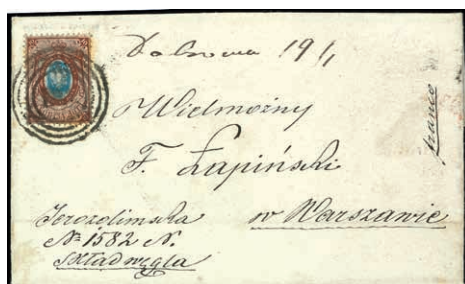 Dabrowa 19/1
franco
Wielmożny
F. Łapiński
w Warszawie
Jerozolimska
№ 1582 N.
Skład węgla